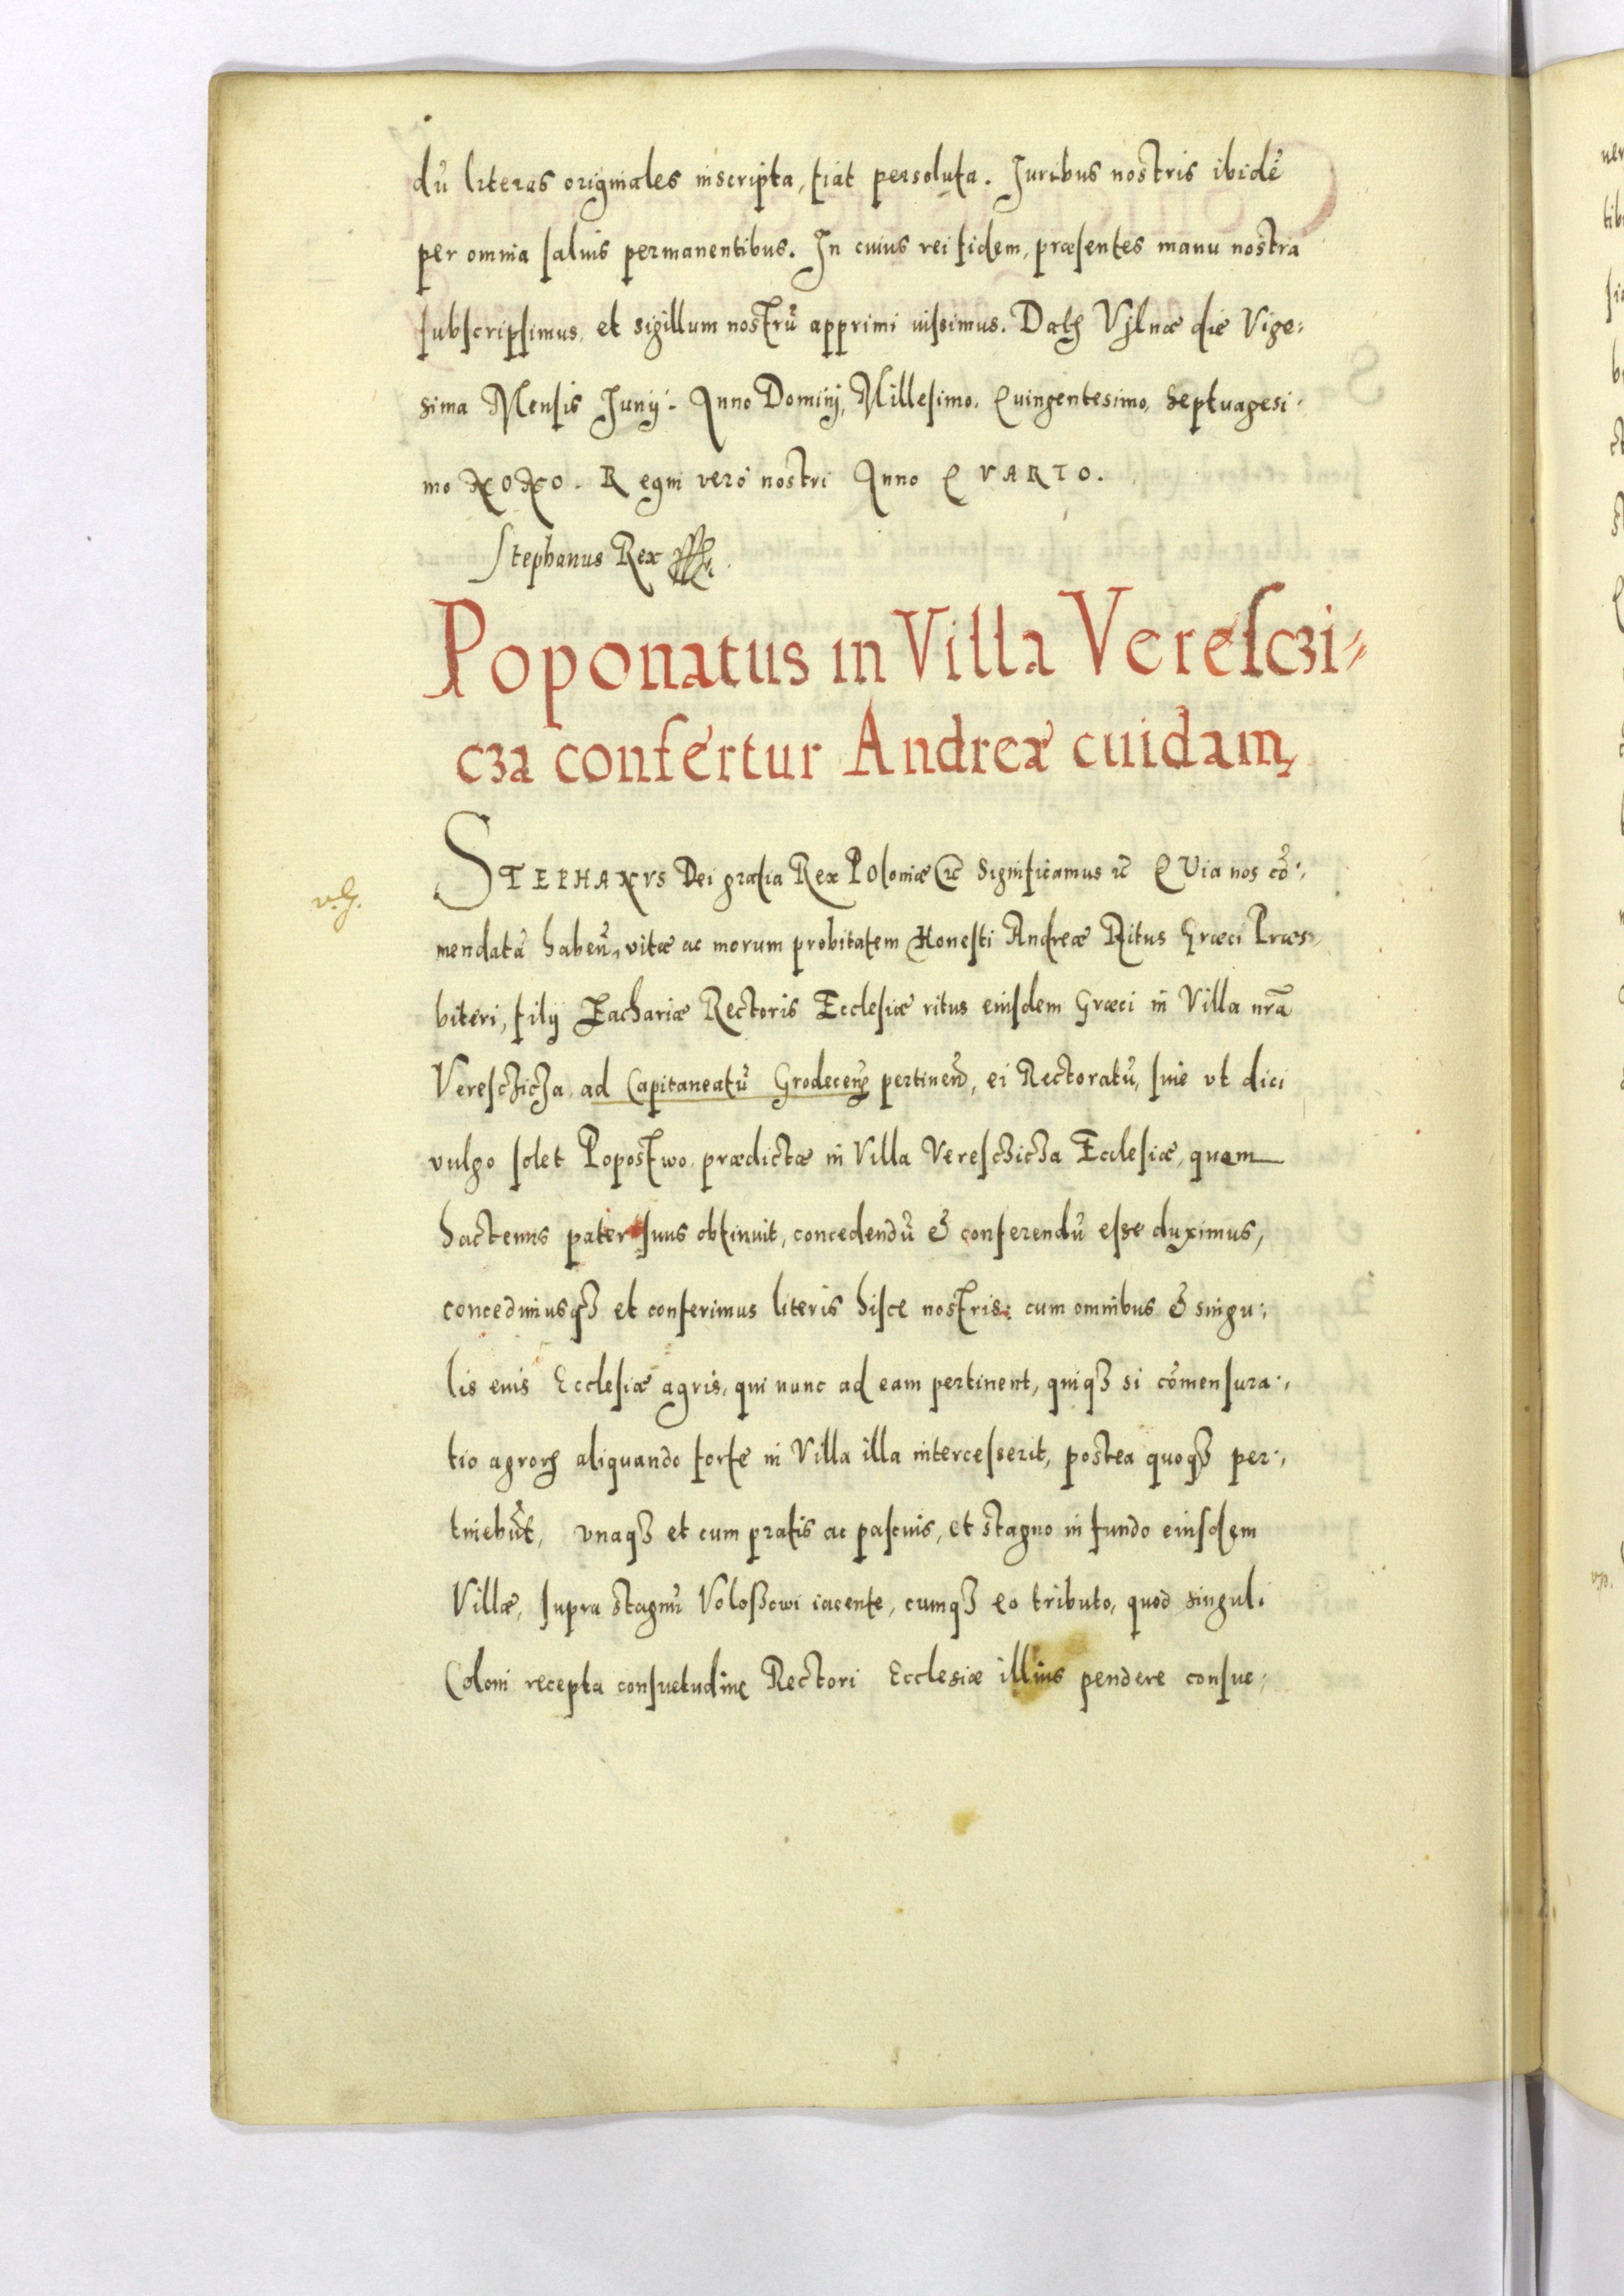 dũ literas originales inscripta, fiat persoluta. Juribus nostris ibidẽ
per omnia salvis permanentibus. In cuius rei fidem, præsentes manu nostra
subscripsimus, et sigillum nostrũ apprimi iussimus. Datꝫ Vjlnæ die Vige:
sima Mensis Junij. Anno Dominj, Millesimo, Quingentesimo, Septuagesi:
mo NONO. Regni vero nostri Anno QVARTO.
Stephanus Rex
Poponatus in Villa Veresczi=
cza confertur Andreæ cuidam
STEPHANVS Dei gratia Rex Poloniæ &c Significamus &c QVia nos cõ:
mendatã habeñ, vitæ ac morum probitatem Honesti Andreæ Ritus Græci Præs:
biteri, filij Zachariæ Rectoris Ecclesiæ ritus eiusdem Græci in Villa nrã
Veresczicza, ad Capitaneatũ Grodeceñ pertineñ, ei Rectoratũ, siue vt dici
vulgo solet Popostwo, prædictæ in Villa Veresczicza Ecclesiæ, quam
hactenus pater suus obtinuit, concedendũ & conferendũ esse duximus,
concedimusqꝫ et conferimus literis hisce nostris: cum omnibus & singu:
lis euis Ecclesiæ agris, qui nunc ad eam pertinent, quiqꝫ si cõmensura:
tio agrorꝫ aliquando forte in Villa illa intercesserit, postea quoqꝫ per:
tinebũt, vnaqꝫ et cum pratis ac pascuis, et stagno in fundo eiusdem
Villæ, supra stagnũ Voloßowi iacente, cumqꝫ eo tributo, quod singuli
Coloni recepta consuetudine Rectori Ecclesiæ illius pendere consue: